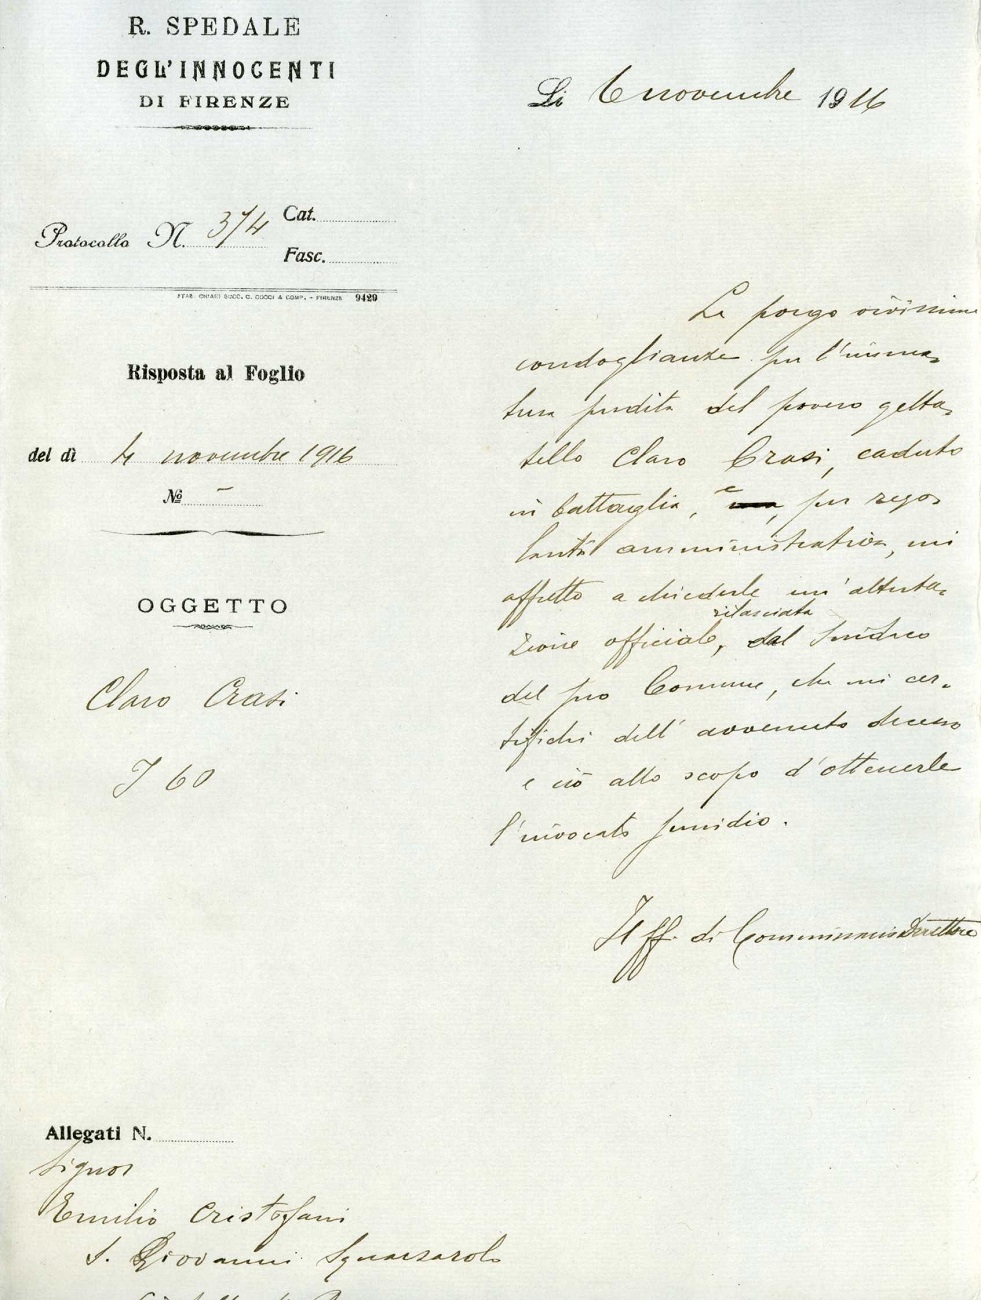 R. SPEDALE
DEGL'INNOCENTI
DI FIRENZE
Li 6 novembre 1916
Protocollo N. 374 Cat.
Fasc.
STAB. CHIARI SUCC. C. COCCI & COMP. - FIRENZE 9429
Risposta al Foglio
del dì 4 novembre 1916
No -
OGGETTO
Claro Crasi
I 60
Le porgo vivissime
condoglianze per l'imma-
tura perdita del povero getta-
tello Claro Crasi, caduto
in battaglia, e, per rego-
larità amministrativa, mi
affretto a chiederle un'attesta-
zione officiale, rilasciata dal Sindaco
del pro Comune, che mi cer-
tifichi dell'avvenuto decesso
e ciò allo scopo d'ottenerle
l'invocato sussidio.
Il ff. di Commissario Direttore
Allegati N.
Signor
Emilio Cristofani
S. Giovanni